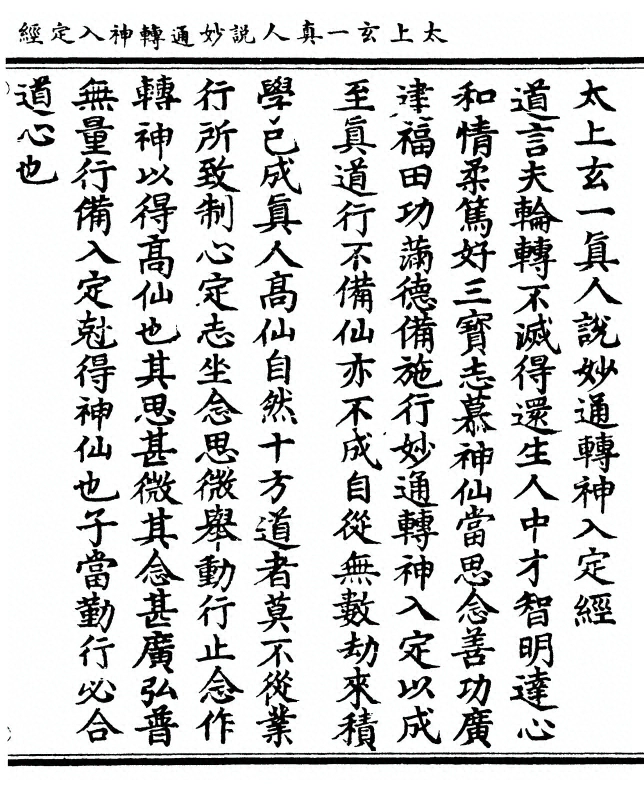 太上玄一真人説妙通轉神入定經
太上玄一眞人說妙通轉神入定經
道言夫輪轉不滅得還生人中才智明達心
和情柔篤好三寶志慕神仙當思念善功廣
建福田功滿德備施行妙通轉神入定以成
至眞道行不備仙亦不成自從無數劫來積
學已成眞人高仙自然十方道者莫不從業
行所致制心定志坐念思微舉動行止念作
轉神以得高仙也其思甚微其念甚廣弘普
無量行備入定尅得神仙也子當勤行必合
道心也